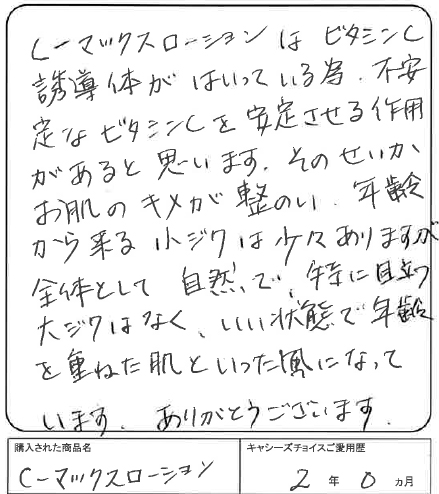 C-マックスローションは ビタミンC
誘導体が はいっている為、不安
定なビタミンCを安定させる作用
があると思います。そのせいか
お肌のキメが整のい、年齢
から来る小ジワは少々ありますが
全体として 自然で、特に目立つ
大ジワはなく、いい状態で年齢
を重ねた肌といった風になって
います。 ありがとうございます。
購入された商品名
C-マックスローション
キャシーズチョイスご愛用歴
2 年 0 ヵ月